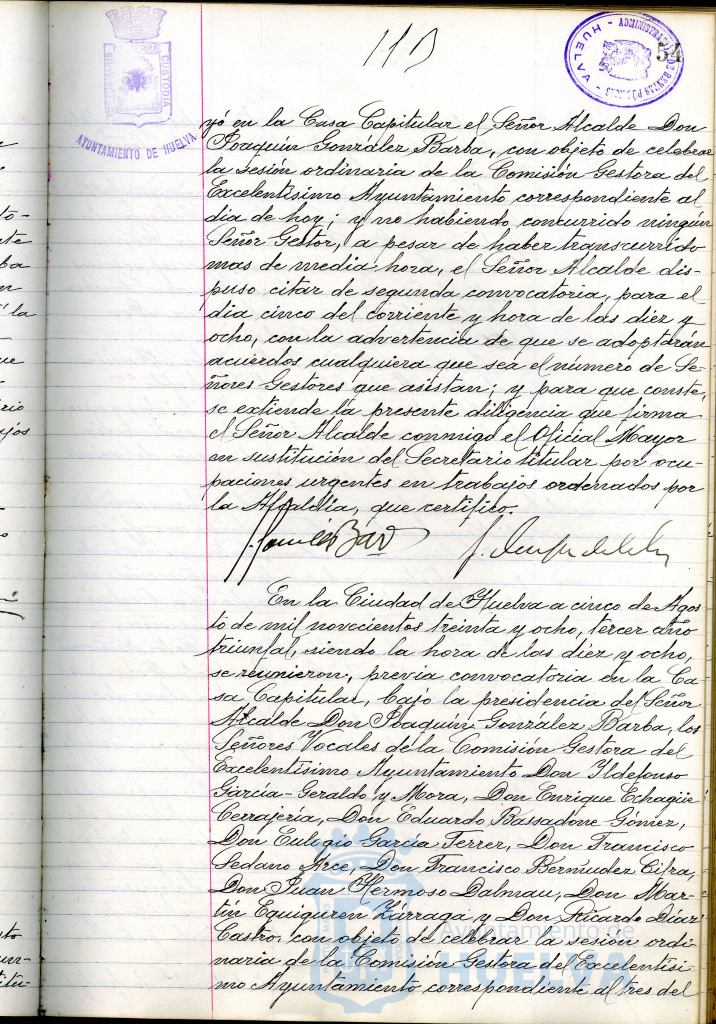 110
54
ADMINISTRACION DE RENTAS PUBLICAS
HUELVA
CUSTODIA
AYUNTAMIENTO DE HUELVA
yó en la Casa Capitular el Señor Alcalde Don
Joaquín González Barba, con objeto de celebrar
la sesión ordinaria de la Comisión Gestora del
Excelentísimo Ayuntamiento correspondiente al
día de hoy; y no habiendo concurrido ningún
Señor Gestor, a pesar de haber transcurrido
mas de media hora, el Señor Alcalde dis-
puso citar de segunda convocatoria, para el
día cinco del corriente y hora de las diez y
ocho, con la advertencia de que se adoptarán
acuerdos cualquiera que sea el número de Se-
ñores Gestores que asistan; y para que conste,
se extiende la presente diligencia que firma
el Señor Alcalde conmigo el Oficial Mayor
en sustitución del Secretario titular por ocu-
paciones urgentes en trabajos ordenados por
la Alcaldía, que certifico.
En la Ciudad de Huelva a cinco de Agos
to de mil novecientos treinta y ocho, tercer año
triunfal, siendo la hora de las diez y ocho,
se reunieron, previa convocatoria en la Ca-
sa Capitular, bajo la presidencia del Señor
Alcalde Don Joaquín González Barba, los
Señores Vocales de la Comisión Gestora del
Excelentísimo Ayuntamiento Don Ildefonso
García-Geraldo y Mora, Don Enrique Echagüe
Cerrajería, Don Eduardo Bassadone Gómez,
Don Eulogio García Ferrer, Don Francisco
Sedano Arce, Don Francisco Bermudez Cifra,
Don Juan Hermoso Dalmau, Don Mar-
tín Equiguren Zárraga, y Don Ricardo Díaz
Castro, con objeto de celebrar la sesión ordi-
naria de la Comisión Gestora del Excelentísi-
mo Ayuntamiento correspondiente al tres del
Ayuntamiento de
HUELVA